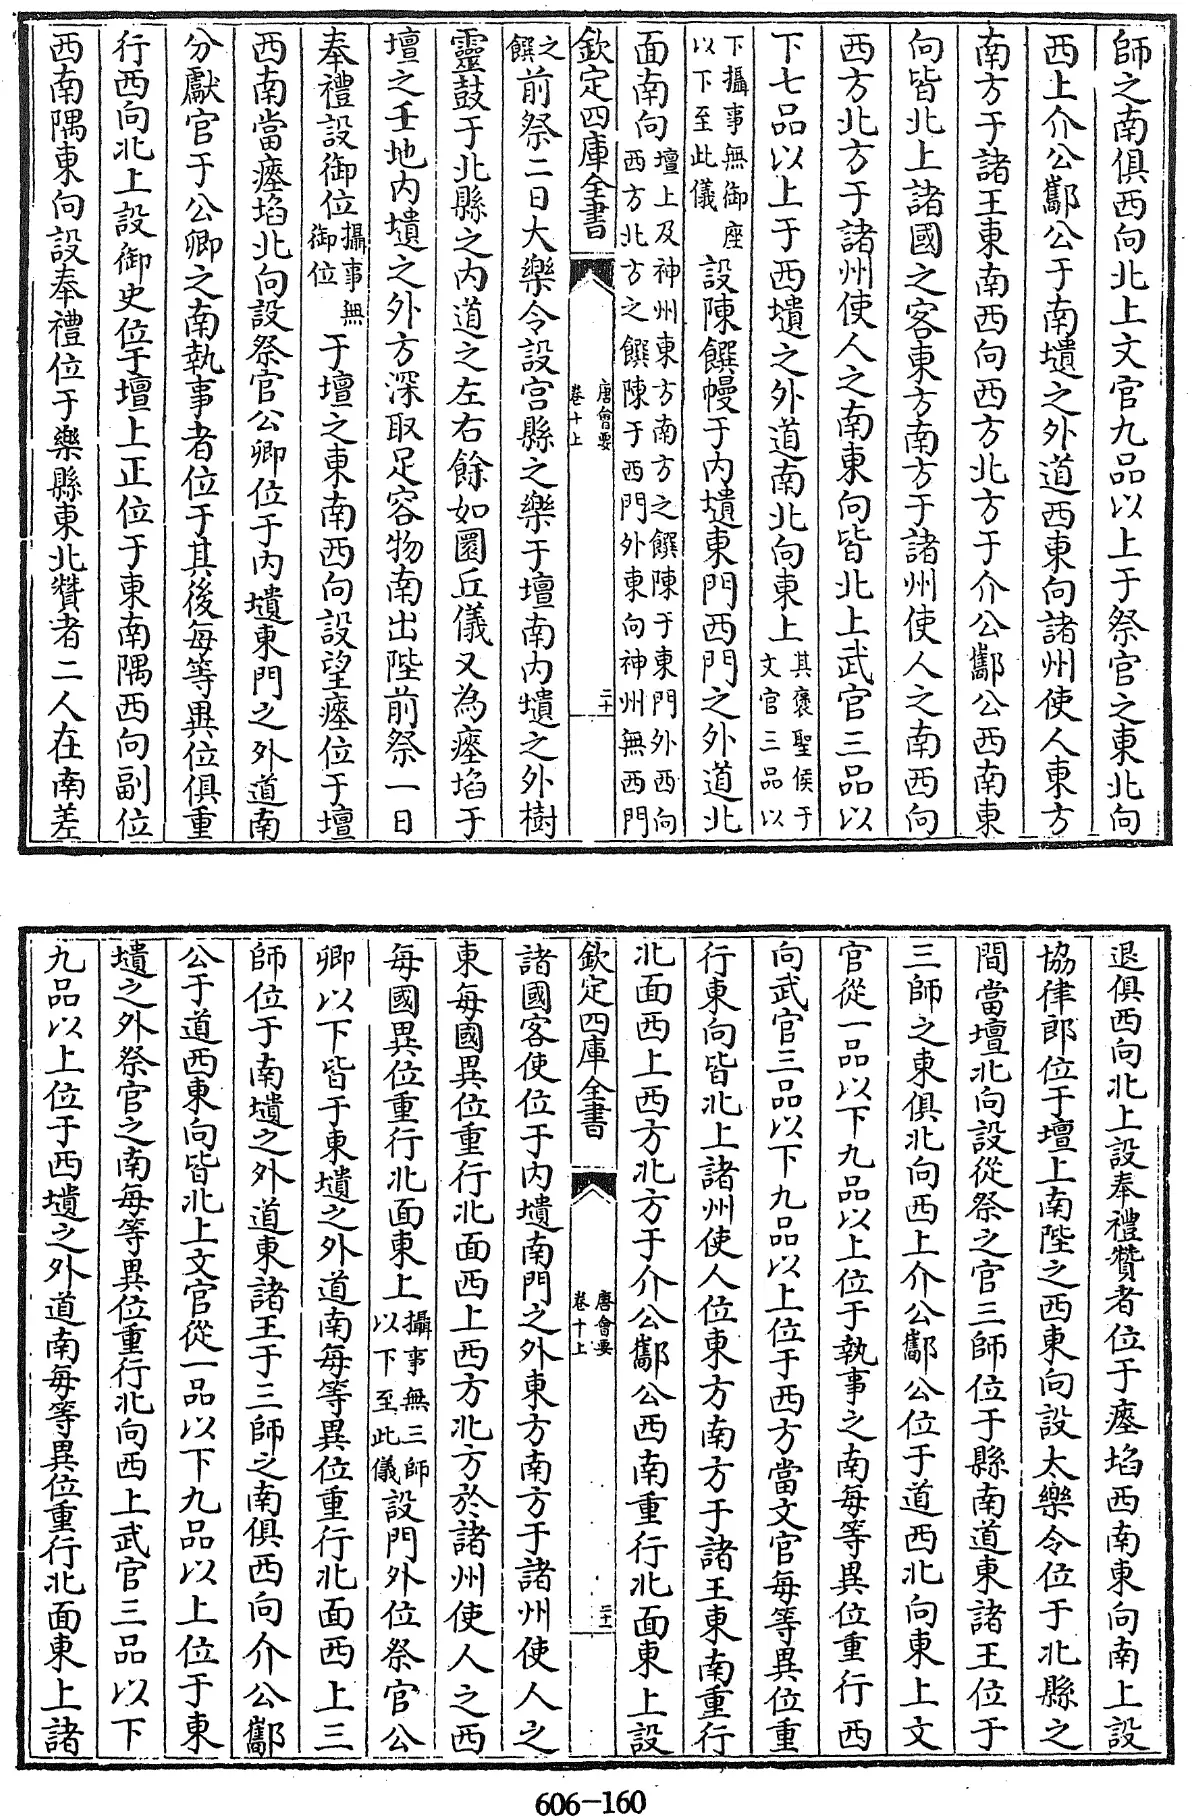 師之南俱西向北上文官九品以上于祭官之東北向
西上介公酅公于南壝之外道西東向諸州使人東方
南方于諸王東南西向西方北方于介公酅公西南東
向皆北上諸國之客東方南方于諸州使人之南西向
西方北方于諸州使人之南東向皆北上武官三品以
下七品以上于西壝之外道南北向東上其褒聖侯于文官三品以
下攝事無御座以下至此儀設陳饌幔于内壝東門西門之外道北
面南向壇上及神州東方南方之饌陳于東門外西向西方北方之饌陳于西門外東向神州無西門
欽定四庫全書
唐會要
卷十上
二十
之饌前祭二日大樂令設宫縣之樂于壇南内壝之外樹
靈鼓于北縣之内道之左右餘如圜丘儀又為瘞埳于
壇之壬地内壝之外方深取足容物南出陛前祭一日
奉禮設御位攝事無御位于壇之東南西向設望瘞位于壇
西南當瘞埳北向設祭官公卿位于内壝東門之外道南
分獻官于公卿之南執事者位于其後每等異位俱重
行西向北上設御史位于壇上正位于東南隅西向副位
西南隅東向設奉禮位于樂縣東北贊者二人在南差
退俱西向北上設奉禮贊者位于瘞埳西南東向南上設
協律郎位于壇上南陛之西東向設太樂令位于北縣之
間當壇北向設從祭之官三師位于縣南道東諸王位于
三師之東俱北向西上介公酅公位于道西北向東上文
官從一品以下九品以上位于執事之南每等異位重行西
向武官三品以下九品以上位于西方當文官每等異位重
行東向皆北上諸州使人位東方南方于諸王東南重行
北面西上西方北方于介公酅公西南重行北面東上設
欽定四庫全書
唐會要
卷十上
二十一
諸國客使位于内壝南門之外東方南方于諸州使人之
東每國異位重行北面西上西方北方於諸州使人之西
每國異位重行北面東上攝事無三師以下至此儀設門外位祭官公
卿以下皆于東壝之外道南每等異位重行北面西上三
師位于南壝之外道東諸王于三師之南俱西向介公酅
公于道西東向皆北上文官從一品以下九品以上位于東
壝之外祭官之南每等異位重行北向西上武官三品以下
九品以上位于西壝之外道南每等異位重行北面東上諸
606-160